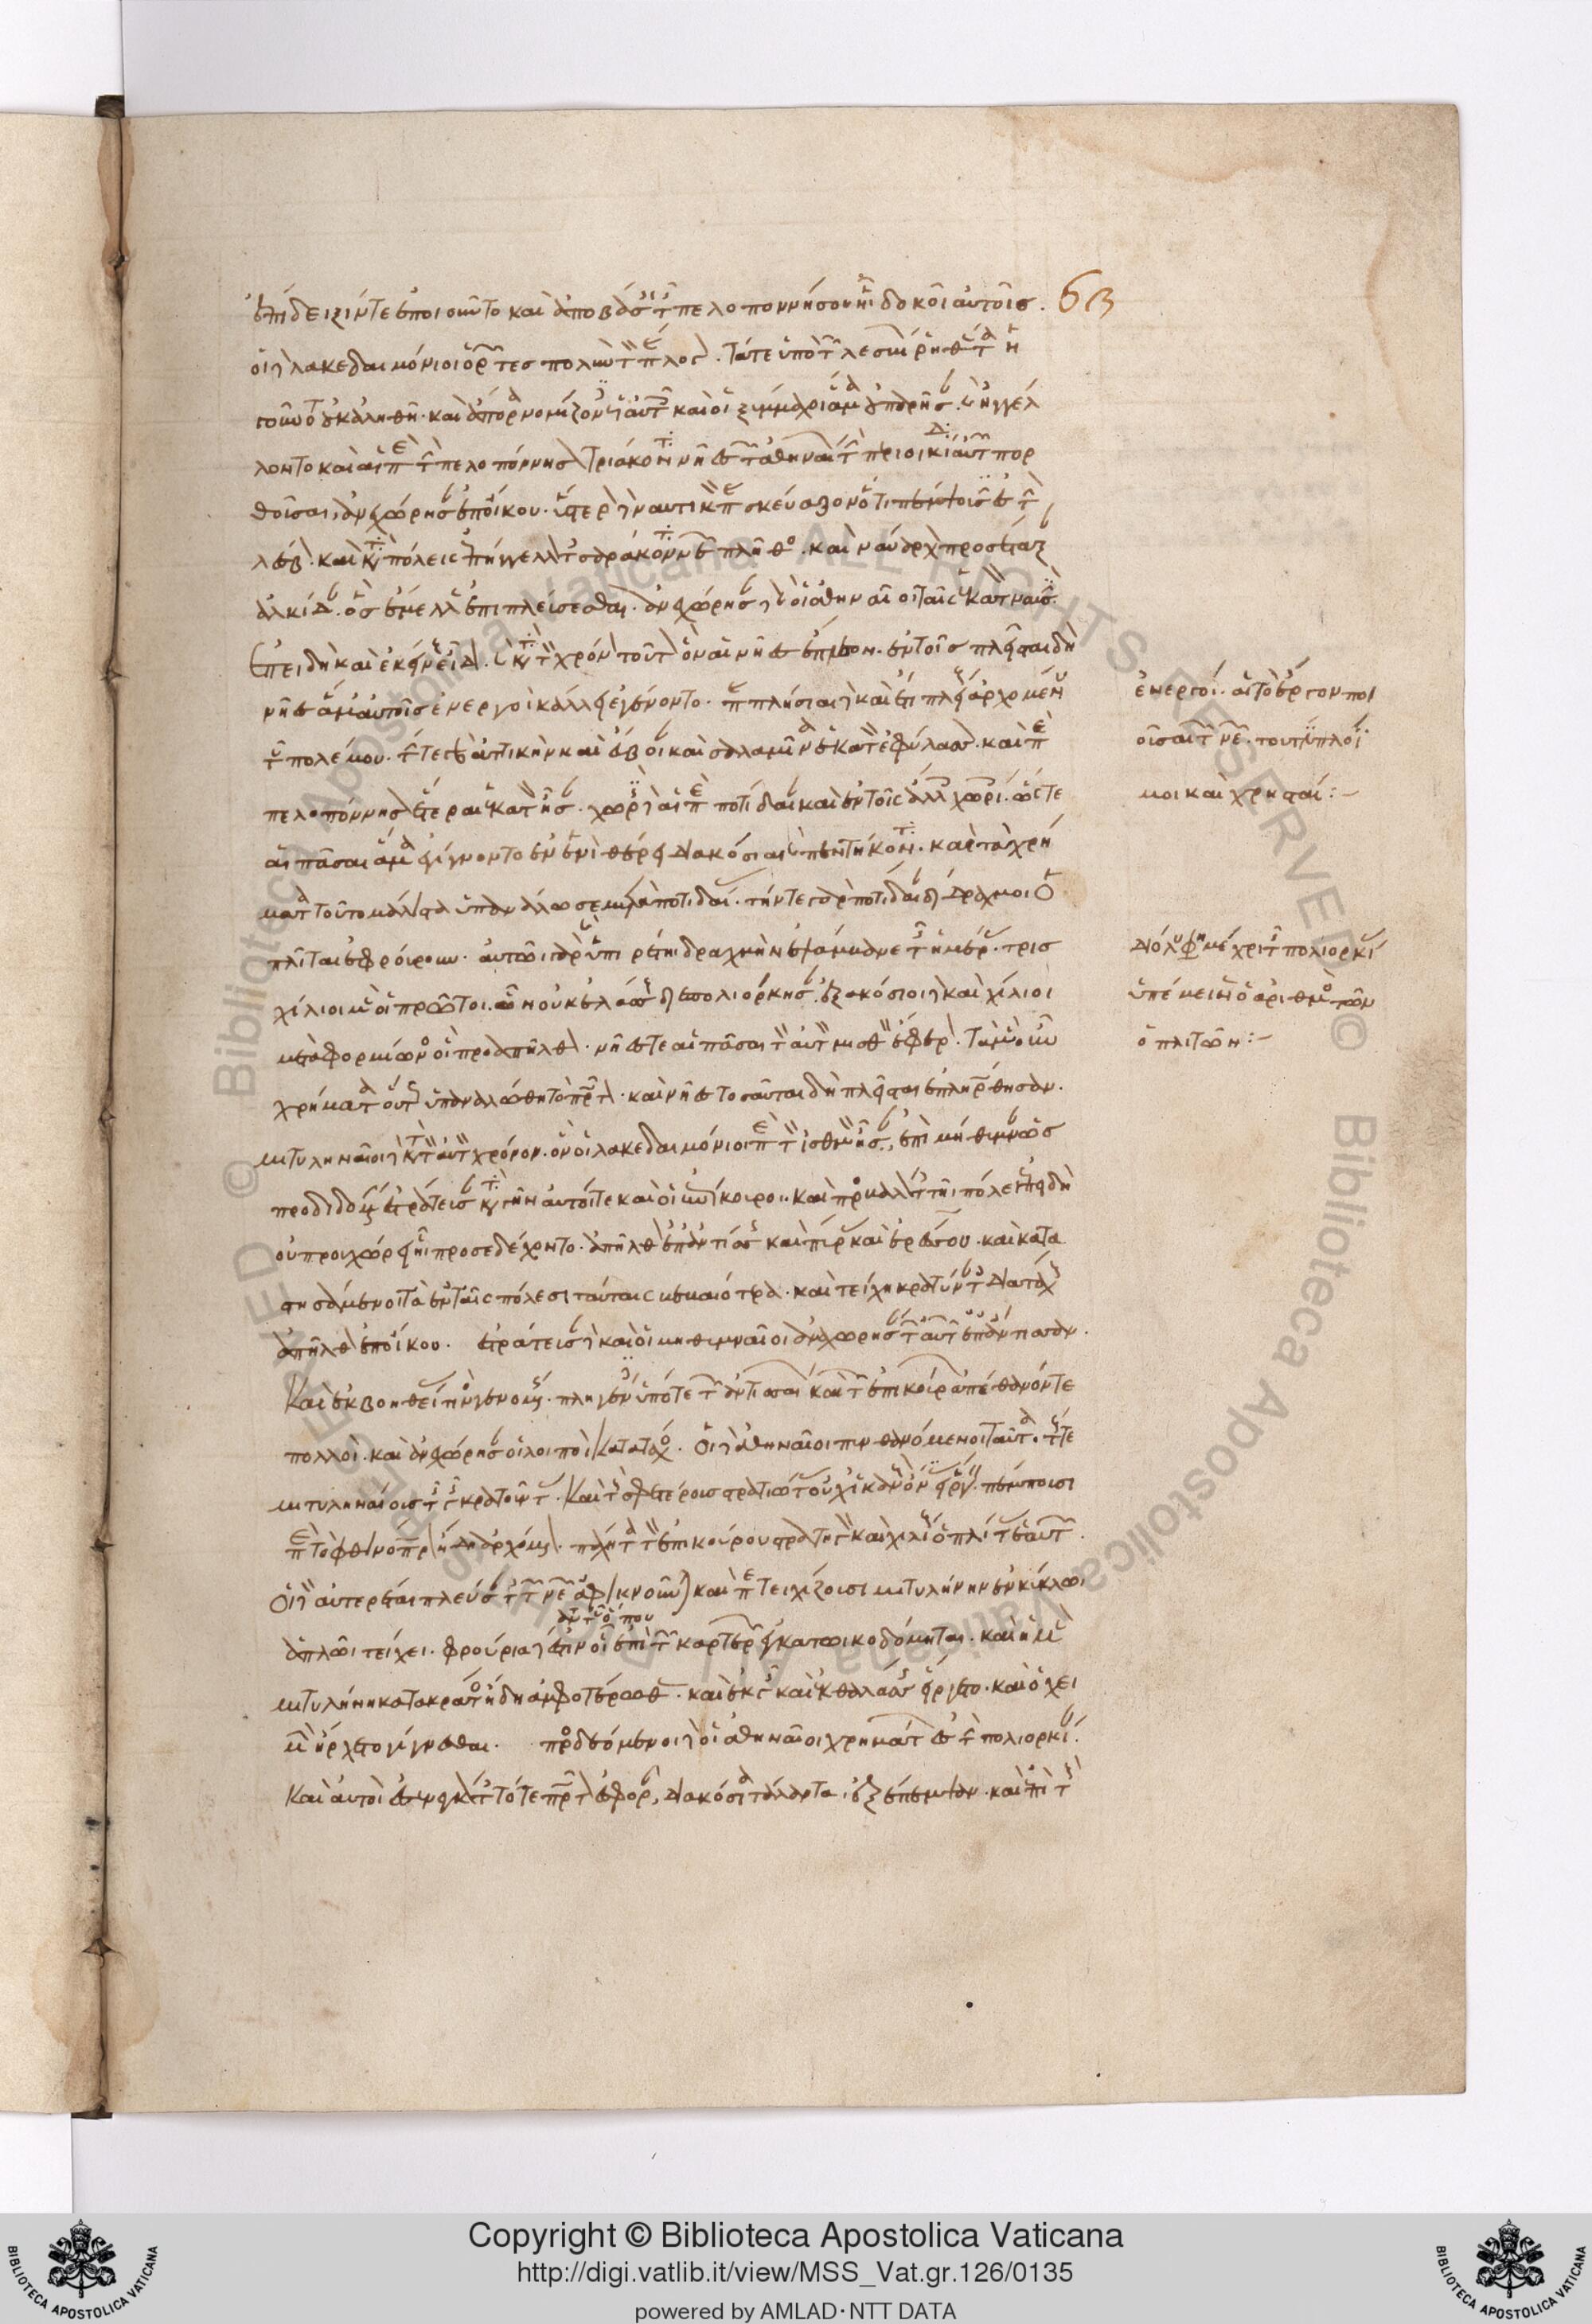 ἐπίδειξίν τε ἐποιοῦντο καὶ ἀποβάσεις τῆς πελοποννήσου ἧι δοκοῖ αὐτοῖς. 63
οἱ δὲ λακεδαιμόνιοι ὁρῶντες πολὺν τὸν παράλογον. τά τε ὑπὸ τῶν λεσβίων ῥηθέντα ἡ
γοῦντο οὐκ ἀληθῆ. καὶ ἄπορα νομίζοντες ὡς αὐτοῖς καὶ οἱ ξύμμαχοι ἅμα οὐ παρῆσαν. καὶ ἠγγέλ
λοντο καὶ αἱ περὶ τὴν πελοπόννησον τριάκοντα νῆες τῶν ἀθηναίων τὴν περιοικίδα αὐτῶν πορ
θοῦσαι, ἀνεχώρησαν ἐπ' οἴκου. ὕστερον δὲ ναυτικὸν παρεσκεύαζον ὅτι πέμψουσιν ἐς τὴν
λέσβον. καὶ κατὰ πόλεις ἐπήγγελλον τεσσαράκοντα νεῶν πλῆθος. καὶ ναύαρχον προσέταξαν
ἀλκίδαν. ὃς ἔμελλεν ἐπιπλεύσεσθαι. ἀνεχώρησαν δὲ καὶ οἱ ἀθηναῖοι ταῖς ἑκατὸν ναυσίν.
Ἐπειδὴ καὶ ἐκείνους εἶδον. καὶ κατὰ τὸν χρόνον τοῦτον ὃν αἱ νῆες ἔπλεον. ἐν τοῖς πλεῖσται δὴ
νῆες ἅμα αὐτοῖς ἐνεργοὶ κάλλει ἐγένοντο. παραπλήσιαι δὲ καὶ ἔτι πλείους ἀρχομένου
τοῦ πολέμου. τήν τε γὰρ ἀττικὴν καὶ εὔβοιαν καὶ σαλαμῖνα ἑκατὸν ἐφύλασσον. καὶ περὶ
πελοπόννησον ἕτεραι ἑκατὸν ἦσαν. χωρὶς δὲ αἱ περὶ ποτίδαιαν καὶ ἐν τοῖς ἄλλοις χωρίοις. ὥστε
αἱ πᾶσαι ἅμα ἐγίγνοντο ἐν ἑνὶ θέρει διακόσιαι καὶ πεντήκοντα. καὶ τὰ χρή
ματα τοῦτο μάλιστα ὑπανάλωσε μετὰ ποτιδαίας. τήν τε γὰρ ποτίδαιαν δίδραχμοι ὁ
πλῖται ἐφρούρουν. αὐτῶι γὰρ καὶ ὑπηρέτηι δραχμὴν ἐλάμβανε τῆς ἡμέρας. τρισ
χίλιοι μὲν οἱ πρῶτοι. ὧν οὐκ ἐλάσσους διεπολιόρκησαν. ἑξακόσιοι δὲ καὶ χίλιοι
μετὰ φορμίωνος οἳ προαπῆλθον. νῆές τε αἱ πᾶσαι τὸν αὐτὸν μισθὸν ἔφερον. τὰ μὲν οὖν
χρήματα οὕτως ὑπαναλώθη τὸ πρῶτον. καὶ νῆες τοσαῦται δὴ πλεῖσται ἐπληρώθησαν.
μιτυληναῖοι δὲ κατὰ τὸν αὐτὸν χρόνον. ὃν οἱ λακεδαιμόνιοι περὶ τὸν ἰσθμὸν ἦσαν, ἐπὶ μήθυμναν ὡς
προδιδομένην ἐστράτευσαν κατὰ γῆν αὐτοί τε καὶ οἱ ἐπίκουροι. καὶ προσβαλόντες τῆι πόλει ἐπειδὴ
οὐ προυχώρει ἧι προσεδέχοντο. ἀπῆλθον ἐπ' ἀντίσσης καὶ πύρρας καὶ ἐρέσσου. καὶ κατα
στησάμενοι τὰ ἐν ταῖς πόλεσι ταύταις βεβαιότερα. καὶ τείχη κρατύναντες διὰ τάχους
ἀπῆλθον ἐπ' οἴκου. ἐστράτευσαν δὲ καὶ οἱ μηθυμναῖοι ἀναχωρησάντων αὐτῶν ἐπ' ἄντισσαν.
Καὶ ἐκβοηθείας τινὸς γενομένης. πληγέντες ὑπό τε τῶν ἀντισσαίων καὶ τῶν ἐπικούρων ἀπέθανόν τε
πολλοὶ. καὶ ἀνεχώρησαν οἱ λοιποὶ κατὰ τάχος. Οἱ δὲ ἀθηναῖοι πυνθανόμενοι ταῦτα. τούς τε
μιτυληναίους τῆς γῆς κρατοῦντας. Καὶ τοὺς σφετέρους στρατιώτας οὐχ ἱκανοὺς ὄντας εἴργειν. πέμπουσι
περὶ τὸ φθινόπωρον ἤδη ἀρχόμενον. πάχητα τὸν ἐπικούρου στρατηγὸν καὶ χιλίους ὁπλίτας ἑαυτῶν.
Οἱ δὲ αὐτερέται πλεύσαντες τῶν νεῶν ἀφικνοῦνται καὶ περιτειχίζουσι μιτυλήνην ἐν κύκλωι
ἁπλῶι τείχει. φρούρια δὲ ἔστιν οἷ ἐπὶ τῶν καρτερῶν ἐγκατωικοδόμηται. καὶ ἡ μὲν
ἀντὶ τοῦ ὅπου
μιτυλήνη κατὰ κράτος ἤδη ἀμφοτέρωθεν. καὶ ἐκ γῆς καὶ ἐκ θαλάσσης εἴργετο. καὶ ὁ χει
μὼν ἤρχετο γίγνεσθαι. προσδεόμενοι δὲ οἱ ἀθηναῖοι χρημάτων ἐς τὴν πολιορκίαν.
Καὶ αὐτοὶ ἐσενεγκόντες τότε πρῶτον ἐσφορὰν, διακόσια τάλαντα. ἐξέπεμψαν. καὶ ἐπὶ τοὺς
ἐνεργοί. αἱ τὸ ἔργον ποι
οῦσαι τῶν νεῶν. τουτέστι πλόϊ
μοι καὶ χρησταί:-
διόλου φησὶ μέχρι τῆς πολιορκίας
ὑπέμεινεν ὁ ἀριθμὸς τῶν
ὁπλιτῶν:-
Copyright © Biblioteca Apostolica Vaticana
http://digi.vatlib.it/view/MSS_Vat.gr.126/0135
powered by AMLAD·NTT DATA